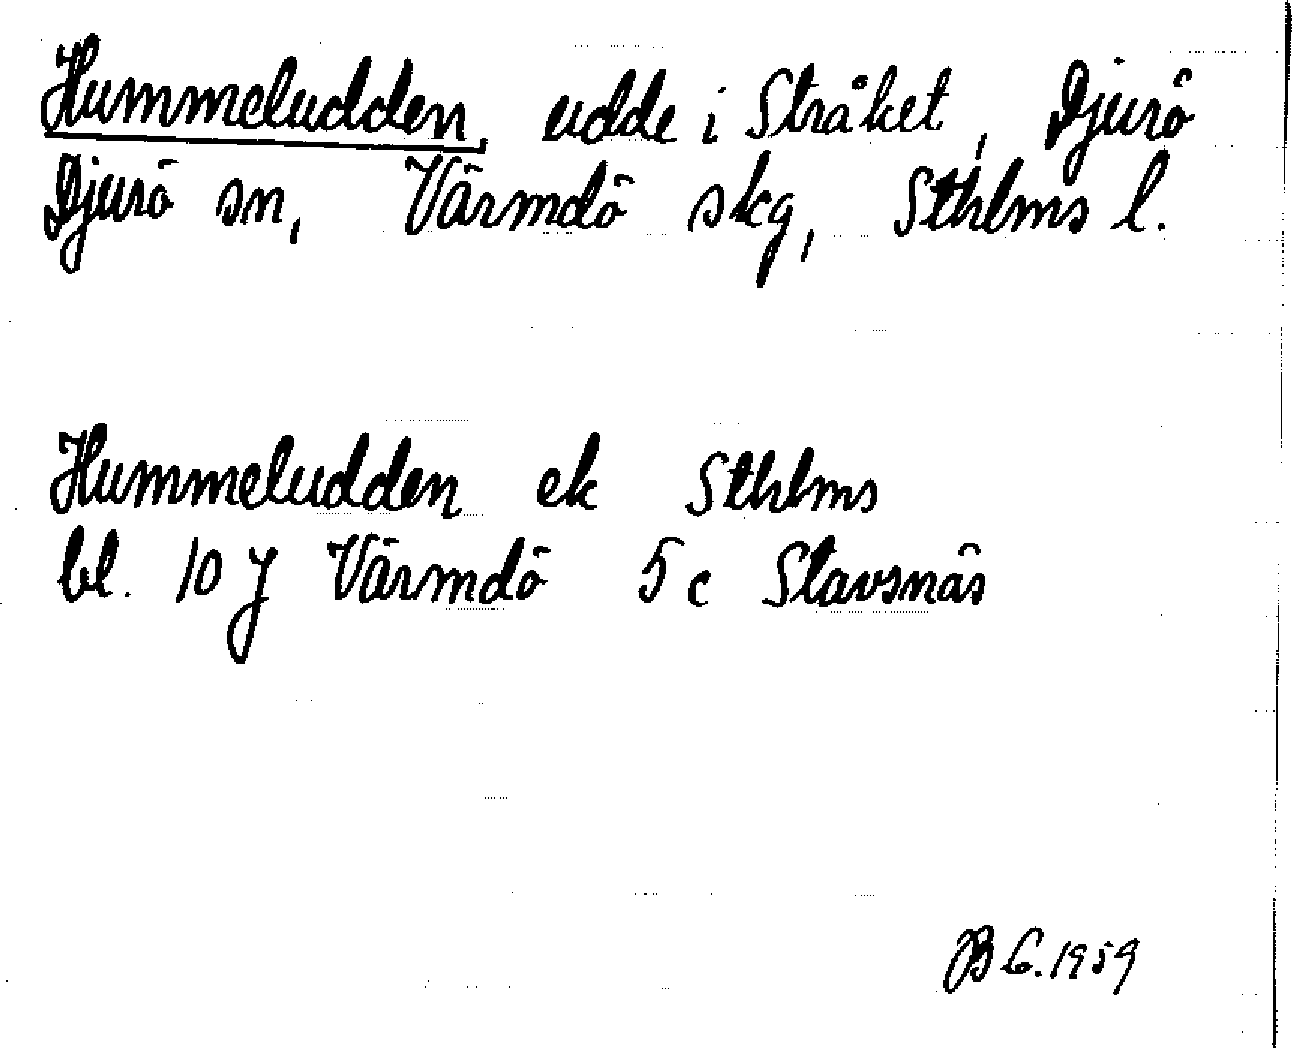 Hummeludden, udde i Stråket, Djurö
Djurö sn, Värmdö skg, Sthlms l.
Hummeludden ek Sthlms
bl. 10 J Värmdö 5 c Stavsnäs
B G. 1959